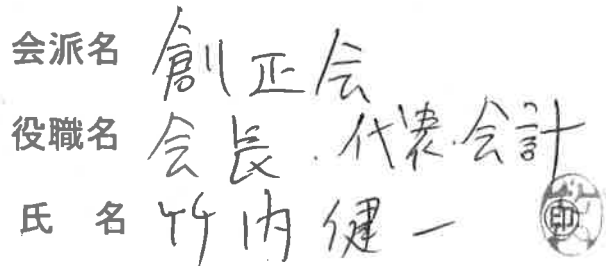 会派名 創正会
役職名 会長.代表.会計
氏 名 竹内健一 印